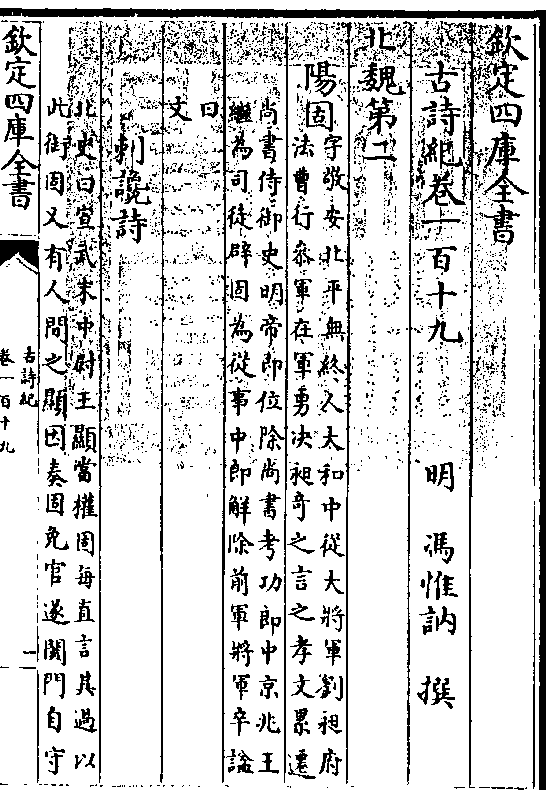 欽定四庫全書
古詩紀卷一百十九
明 馮惟訥 撰
北魏第二
陽固
字敬安北平無終人太和中從大將軍劉昶府
法曹行參軍在軍勇决昶奇之言之孝文累遷
尚書侍御史明帝即位除尚書考功郎中京兆王
繼為司徒辟固為從事中郎解除前軍將軍卒諡
曰
文
刺讒詩
北史曰宣武末中尉王顯當權固每直言其過以
此銜固又有人間之顯因奏固免官遂闔門自守
欽定四庫全書
古詩紀
卷一百十九
一